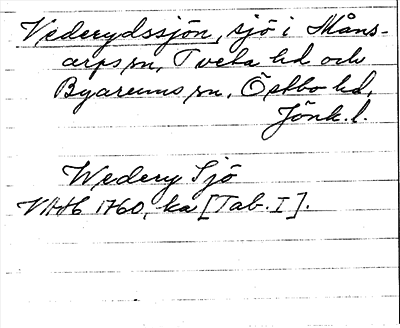 Vederydssjön, sjö i Måns-
arps sn, Tveta hd och
Byarums sn, Östbo hd,
Jönk. l.
Wedery Sjö
VAH 1760, ka [Tab. I].